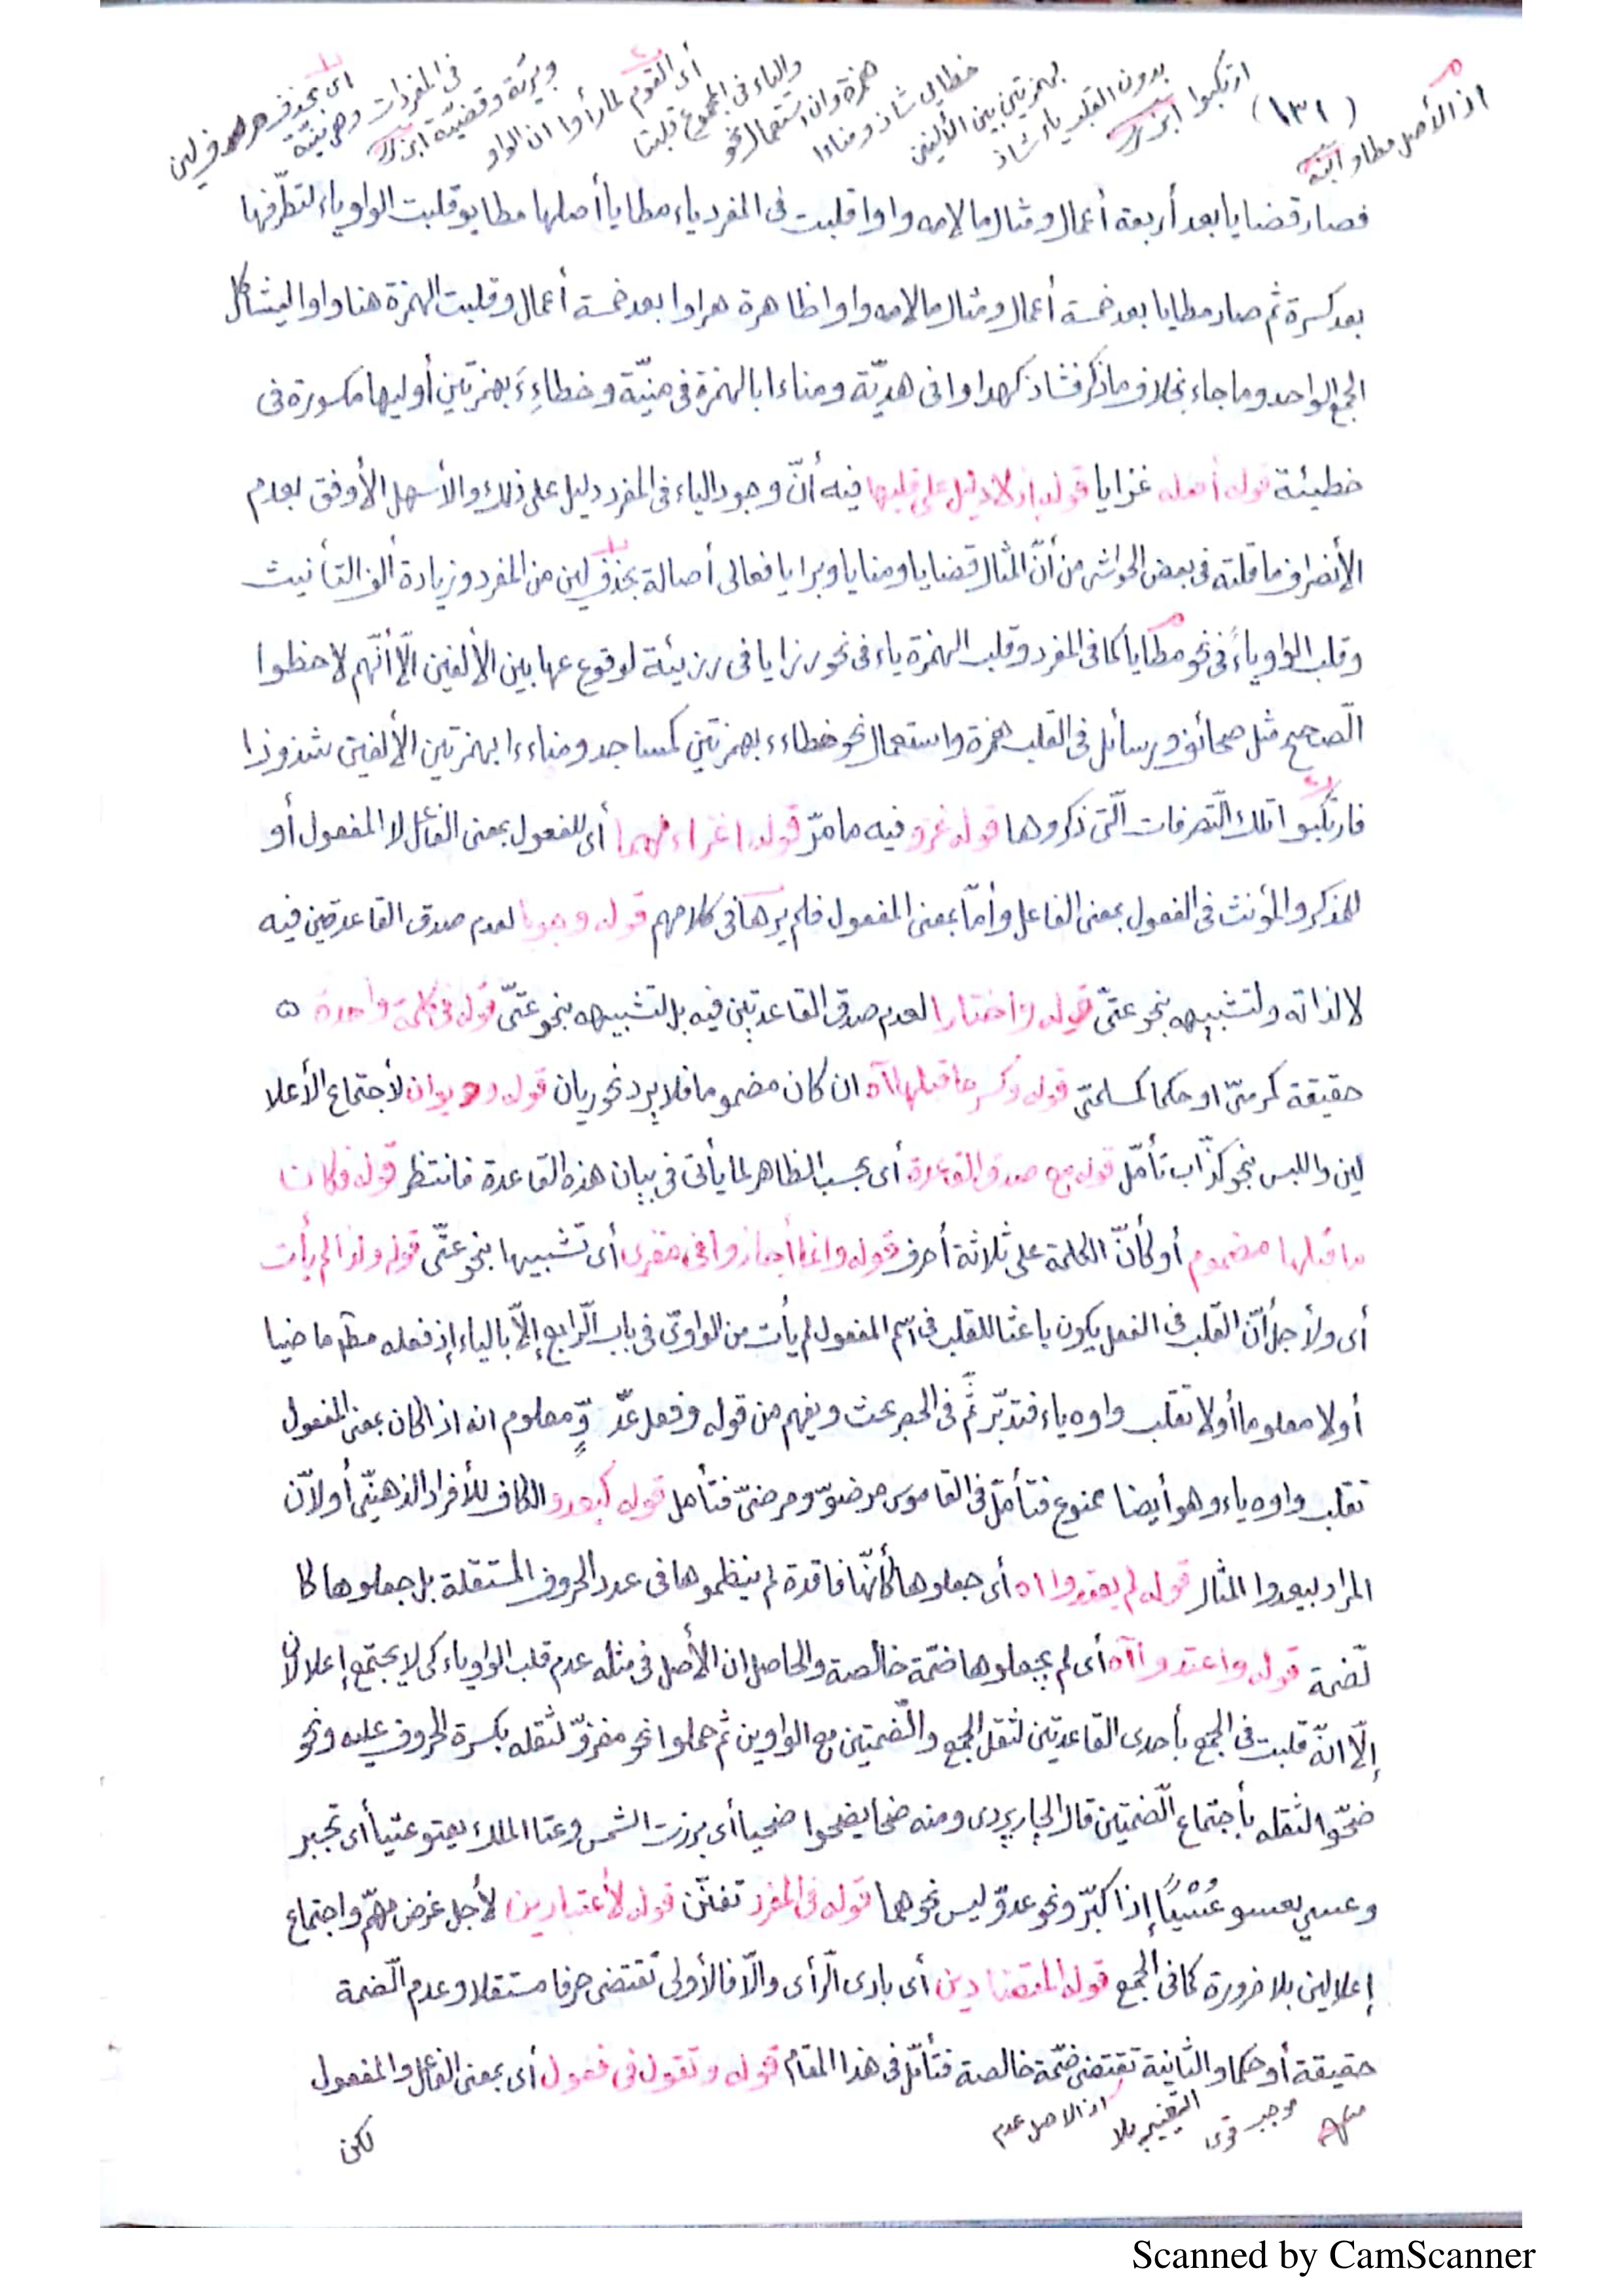 (١٣٢)
اذ الأصل مطاو ابنه
ارتكبوا ابن بك
بدون القلب ياء شاذ
بهمزتين بين الألفين
خطائى شاذ ومناءا
همزة وان استعمال نحو
والياء فى الجموع قلبتا
أى القوم لما رأوا ان الواو
وبريّة وقضيّة ابن بك
فى المفردات وهى منيّة
اى بحذف حرف لين
فصار قضايا بعد أربعة أعمال ومثال ما لامه واوا قلبت فى المفرد ياء مطايا أصلها مطايو قلبت الواو ياء لتطرّفها
بعد كسرة ثم صار مطايا بعد خمسة أعمال ومثال ما لامه واوا ظاهرة هراوا بعد خمسة أعمال وقلبت الهمزة هنا واوا ليشاكل
الجمع الواحد وما جاء بخلاف ما ذكر فشاذ كهداوا فى هديّة ومناءا بالهمزة فى منيّة وخطاءِءَ بهمزتين أوليها مكسورة فى
خطيئة قوله أصله غزايا قوله اذ لا دليل على قلبها فيه أنّ وجود الياء فى المفرد دليل على ذلك والأسهل الأوفق بعدم
الأنصراف ما قلته فى بعض الحواشى من أنّ المثال قضايا ومنايا وبرايا فعالى أصالة بحذف لين من المفرد وزيادة ألف التأنيث
وقلب الواو ياءً فى نحو مطايا كما فى المفرد وقلب الهمزة ياء فى نحو رزايا فى رزيئة لوقوعها بين الألفين الّا أنّهم لاحظوا
الّصحيح مثل صحائف ورسائل فى القلب همزة واستعمال نحو خطاءء بهمزتين كمساجد ومناءءا بهمزتين الألفين شذوذا
فارتكبوا تلك التّصرفات الّتى ذكروها قوله غزو فيه ما مرّ قوله اغزاء لهما أى للفعول بمعنى الفاعل لا المفعول أو
للمذكر والمؤنث فى الفعول بمعنى الفاعل وأمّا بمعنى المفعول فلم يرها فى كلامهم قوله وجوبا لعدم صدق القاعدتين فيه
لا لذاته ولتشبيهه بنحو عتىّ قوله واختارا لعدم صدق القاعدتين فيه بل لتشبيهه بنحو عتىّ قوله فى كلمة واحدة ٥
حقيقة كرمىّ او حكما كمسلمىّ قوله وكسر ما قبلها اه ان كان مضموما فلا يرد نحو ريان قوله وديوان لأجتماع الأعلا
لين واللبس بنحو كذّاب تأمّل قوله مع صدق القاعدة أى بحسب الظاهر لما يأتى فى بيان هذه القاعدة فانتظر قوله فكان
ما قبلها مضموم أو كأنّ الكلمة على ثلاثة أحرف قوله وانما أجازوا فى مغزى أى تشبيها بنحو عتىّ قوله ولذا لم يأت
أى ولأجل أنّ القلب فى الفعل يكون باعثا للقلب فى اسم المفعول لم يأت من الواوىّ فى باب الّرابع إلاّ بالياء إذ فعله مطلقا ماضيا
أولا معلوما أولا تقلب واوه ياء فتدبّر ثمّ فى الحصر بحث ويفهم من قوله وفعل عدّوٍّ معلوم انه اذا كان بمعنى المفعول
تقلب واوه ياء وهو أيضا ممنوع فتأمّل فى القاموس مرضوّ ومرضىّ فتأمل قوله كيعدو الكاف للأفراد الذهنىّ أو لأنّ
المراد بيعدوا المثال قوله لم يعتدوا اه أى جعلوها كأنّها فاقدة لم ينظموها فى عدد الحروف المستقلة بل جعلوها كا
لضمة قوله واعتدوا اه أى لم يجعلوها ضمّة خالصة والحاصل ان الأصل فى مثله عدم قلب الواو ياء كى لا يجتمع إعلالان
إلّا انّه قلبت فى الجمع بأحدى القاعدتين لثقل الجمع والّضمتين مع الواوين ثم حملوا نحو مغزوّ لثقله بكسرة الحروف عليه ونحو
ضحّوا لثقله بأجتماع الّضمتين قال الجاربردى ومنه ضحا يضحوا ضحيا أى برزت الشمس وعتا الملك يعتو عتيا أى تجبر
وعسى يعسو عُسْيًا إذا كبّر ونحو عدوّ ليس نحوهما قوله فى المفرد تفنّن قوله لأعتبارين لأجل غرض مهمّ واجتماع
إعلالين بلا ضرورة كما فى الجمع قوله المتضادين أى بادى الّرأى والّا فالأولى تقتضى حرفا مستقلا وعدم الّضمة
حقيقة أو حكما والثانية تقتضى ضمّة خالصة فتأمّل فى هذا المقام قوله وتقول فى فعول أى بمعنى الفاعل والمفعول
اذ الاصل عدم التغيير بلا موجب قوى منه
لكن
Scanned by CamScanner